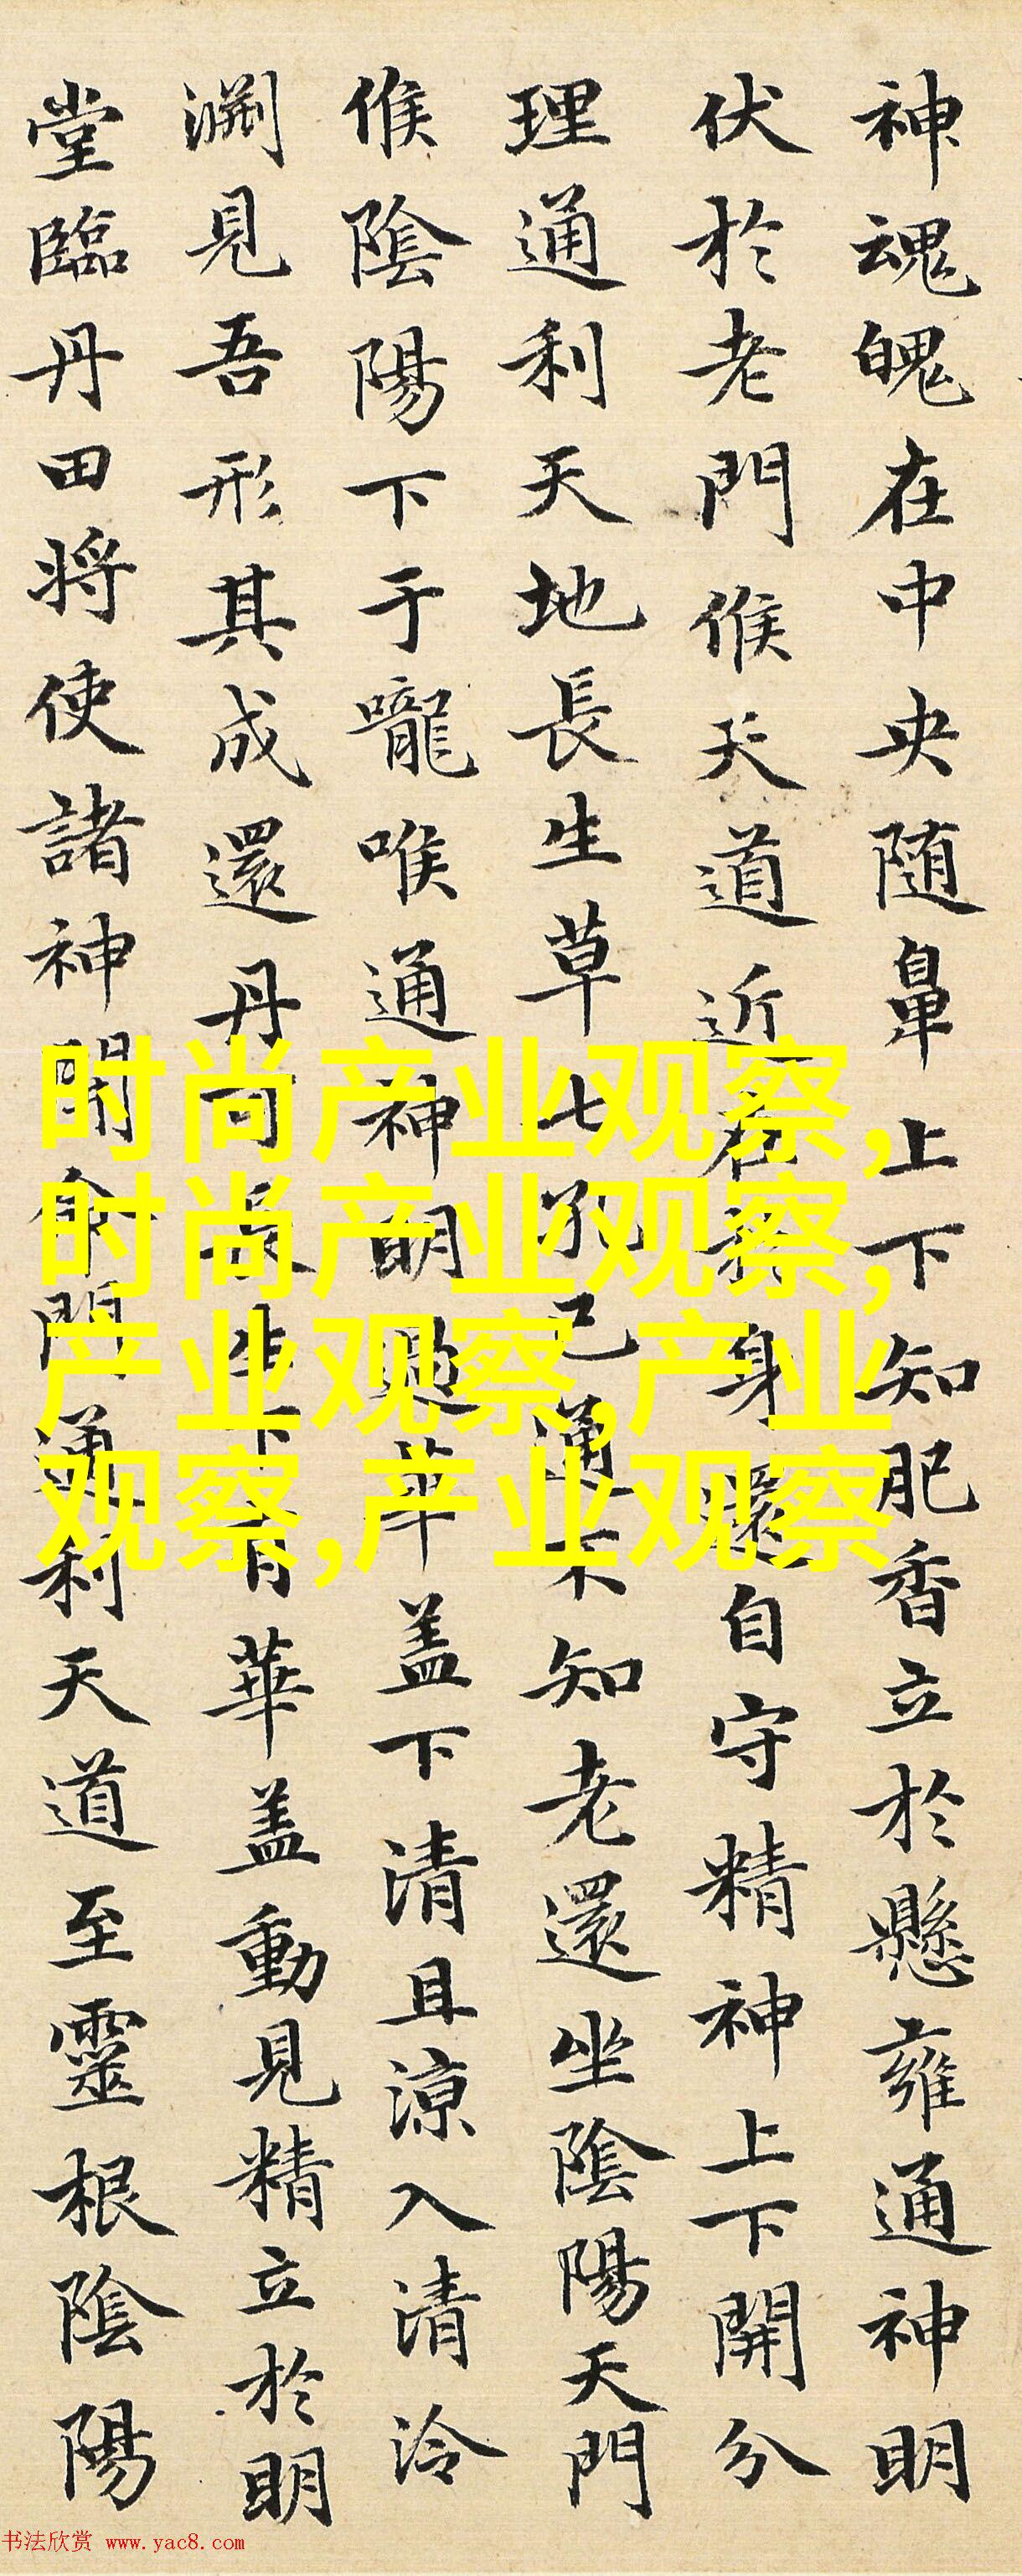 神魂魄在中央随鼻上下知肥香立於懸雍通神明
伏於老門候天道近在於身還自守精神上下開分
理通利天地長生草七孔已通不知老還坐陰陽天門
候陰陽下于嚨喉通神明過華盖下清且涼入清泠
渊見吾形其成還丹可長生下有華盖動見精立於明
堂臨丹田将使諸神開命門通利天道至靈根陰陽
时尚产业观察,
时尚产业观察,
产业观察,产业
观察,产业观察
书法欣赏 www.yac8.com